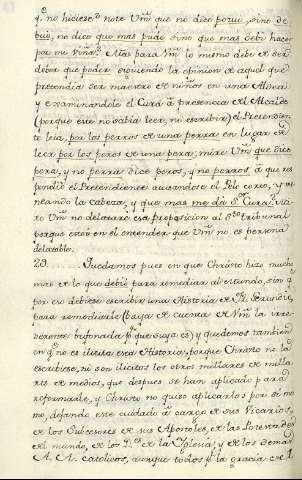 q.^e no hiciese: note Vm^d que no dice pudo, sino de
bio, no dico que mas pudo sino que mas debi hacer
por mi Viña: Mas para Vm^d lo mismo debe de ser
deber que poder siguiendo la opinion de aquel que
pretendia ser maestro de niños en una Aldea
y examinandole el Cura à presencia del Alcalde
(porque este no sabia leer, ni escribir) el Pretendien
te leia, por los perros de una perra en lugar de
leer por los peros de una pera; mire Vm^d que dice
pera, y no perra dice peros, y no perros, à que res
pondió el Pretendiente atusandose el Pelo corto, y me
neando la cabeza, y que mas me da S.^or Cura
Vm^d no delatarà esa proposicion al S.^to tribunal
porque estoy en el entender que Vm^d no es persona
delatable.
29. Quedamos pues en que Christo hizo mucho
mas de lo que debió para remediar al Mundo, sin q.^e
por eso debiese escribir una Historia de Fr. Gerundio,
para remediarle (vaya de cuenta de Vm^d la irre
verente bufonada q.^e suya es) y quedemos tambien
en q.^e no es ilicita esta Historia, porque Christo no la
escribiese, ni son ilicitos los otros millares de milla
res de medios, que despues se han aplicado para
reformarle, y Christo no quiso aplicarlos por si mis
mo, dejando este cuidado à cargo de sus Vicarios,
de los Subcesores de sus Apostoles, de las Potestades
del mundo, de los D.^res de la Yglesia, y de los demas
A. A. catolicos, aunque todos p.^r la gracia de